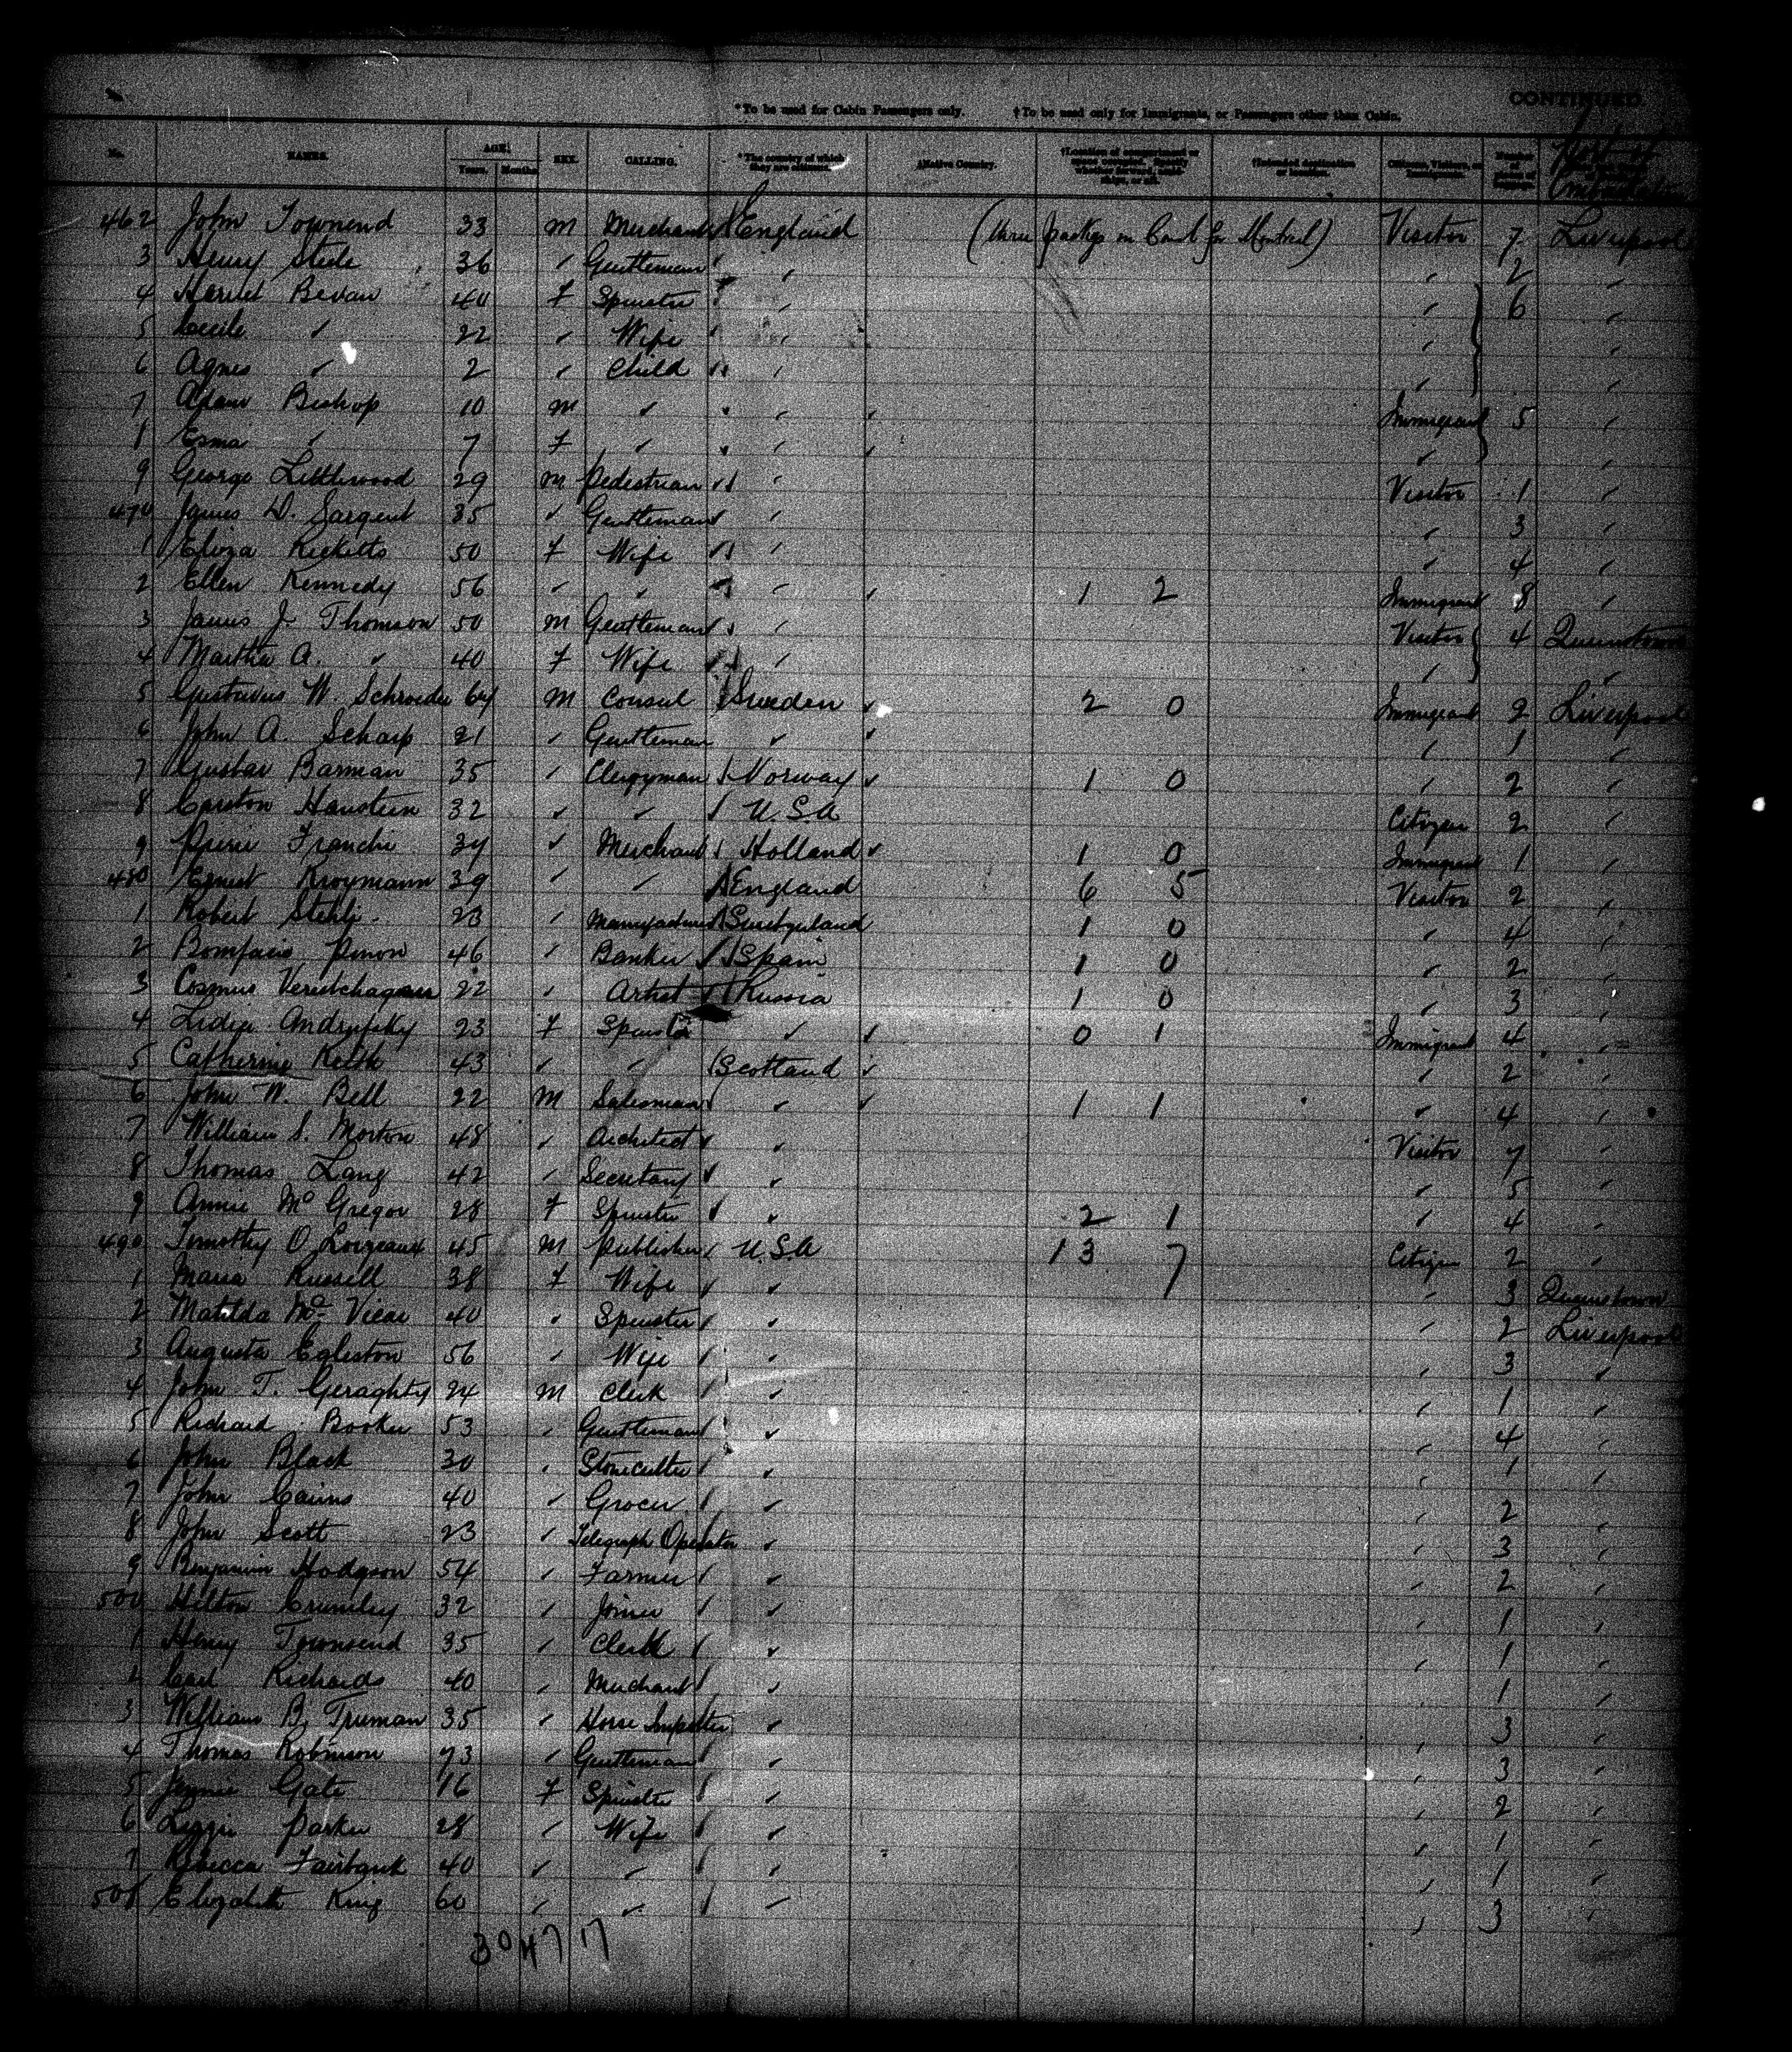 CONTINUED
*To be used for Cabin Passengers only. †To be used only for Immigrants, or Passengers other than Cabin.
No. NAMES. AGE. Years. Months SEX. CALLING. *The country of which they are citizens. †Native Country. †Location of compartment or space occupied. †Intended destination or location. Citizens, Visitors, or Immigrants. Number of pieces of baggage. Port of Embarkation
462 John Townend 33 M Merchant England (three packgs in Cont for Montreal) Visitor 7 Liverpool
3 Henry Steele 36 " Gentleman " " 2 "
4 Harriet Bevan 40 F Spinster " " 6 "
5 Cecile " 22 " Wife " " "
6 Agnes " 2 " Child " " "
7 Adam Bishop 10 M " " " Immigrant 5 "
8 Esma " 7 F " " " " "
9 George Littlewood 29 M Pedestrian " Visitor 1 "
470 James D. Sargent 35 " Gentleman " " 3 "
1 Eliza Ricketts 50 F Wife " " 4 "
2 Ellen Kennedy 56 " " " " 1 2 Immigrant 8 "
3 James J. Thomson 50 M Gentleman " Visitor 4 Queenstown
4 Martha A. " 40 F Wife " " "
5 Gustavus W. Schroeder 64 M Consul Sweden " 2 0 Immigrant 2 Liverpool
6 John A. Scharp 21 " Gentleman " " " 1 "
7 Gustav Barman 35 " Clergyman Norway " 1 0 " 2 "
8 Carsten Hanstein 32 " " U.S.A Citizen 2 "
9 Pierre Franchi 34 " Merchant Holland " 1 0 Immigrant 1 "
480 Ernest Kroymann 39 " " England 6 5 Visitor 2 "
1 Robert Stehli 23 " Manufacturer Switzerland 1 0 " 4 "
2 Bonifacio Pinon 46 " Banker Spain 1 0 " 2 "
3 Cosmus 22 " Artist Russia 1 0 " 3 "
4 Lidia 23 F Spinster " " 0 1 Immigrant 4 "
5 Catherine Keith 43 " " Scotland " " 2 "
6 John W. Bell 22 M Salesman " " 1 1 " 4 "
7 William S. Morton 48 " Architect " Visitor 7 "
8 Thomas Lang 42 " Secretary " " 5 "
9 Annie McGregor 28 F Spinster " 2 1 " 4 "
490 Timothy O Loizeaux 45 M Publisher U.S.A 13 7 Citizen 2 "
1 Maria Russell 38 F Wife " " 3 Queenstown
2 Matilda McVicar 40 " Spinster " " 2 Liverpool
3 Augusta Egleston 56 " Wife " " 3 "
4 John T. Geraghty 24 M Clerk " " 1 "
5 Richard Booker 53 " Gentleman " " 4 "
6 John Black 30 " Stonecutter " " 1 "
7 John Cairns 40 " Grocer " " 2 "
8 John Scott 23 " Telegraph Operator " " 3 "
9 Benjamin Hodgson 54 " Farmer " " 2 "
500 Hilton Crumley 32 " Joiner " " 1 "
1 Henry Townsend 35 " Clerk " " 1 "
2 Carl Richards 40 " Merchant " " 1 "
3 William B. Truman 35 " Horse Importer " " 3 "
4 Thomas Robinson 73 " Gentleman " " 3 "
5 Jennie Gate 16 F Spinster " " 2 "
6 Lizzie Parker 28 " Wife " " 1 "
7 Rebecca Fairbank 40 " " " " 1 "
508 Elizabeth King 60 " " " " 3 "
304717